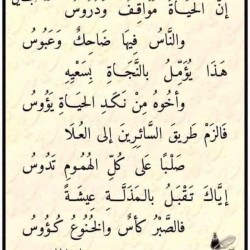 إِنَّ الحَيَاةَ مَوَاقِفٌ وَدُرُوسُ
والنَّاسُ فِيهَا ضَاحِكٌ وَعَبُوسُ
هَذَا يُؤَمِّلُ بالنَّجَاةِ بِسَعْيِهِ
وأخُوهُ مِنْ نَكَدِ الحَيَاةِ يَؤُوسُ
فَالزَمْ طَرِيقَ السَّائِرِينَ إِلَى العُلَا
صَلْبًا عَلَى كُلِّ الهُمُومِ تَدُوسُ
إِيَّاكَ تَقْبَلُ بالمَذَلَّةِ عِيشَةً
فالصَّبْرُ كَأسٌ والخُنُوعُ كُؤُوسُ